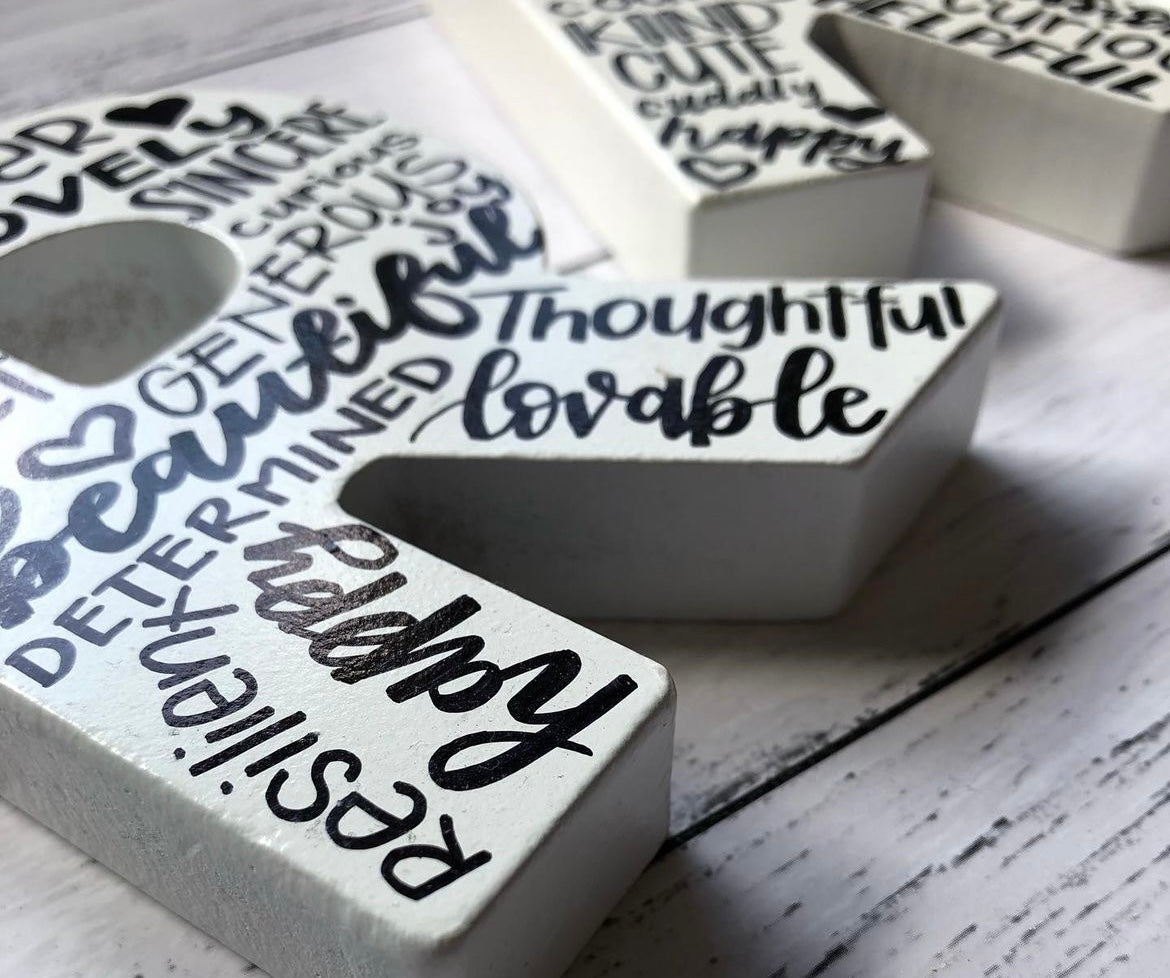 LOVELY
SINCERE
curious
GENEROUS
joy
beautiful
DETERMINED
Thoughtful
lovable
happy
Resilient
KIND
CUTE
cuddly
happy
curious
HELPFUL